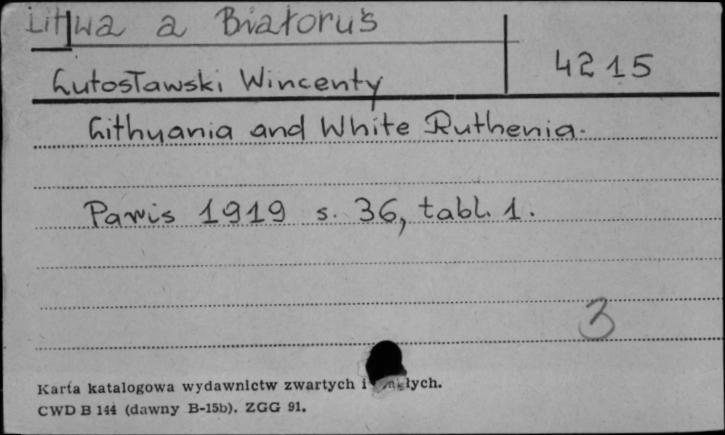 Litwa a Białoruś
Lutosławski Wincenty
4215
Lithuania and White Ruthenia.
Parris 1919 s. 36, tabl. 1.
3
Karta katalogowa wydawnictw zwartych i
CWD B 144 (dawny B-15b). ZGG 91.